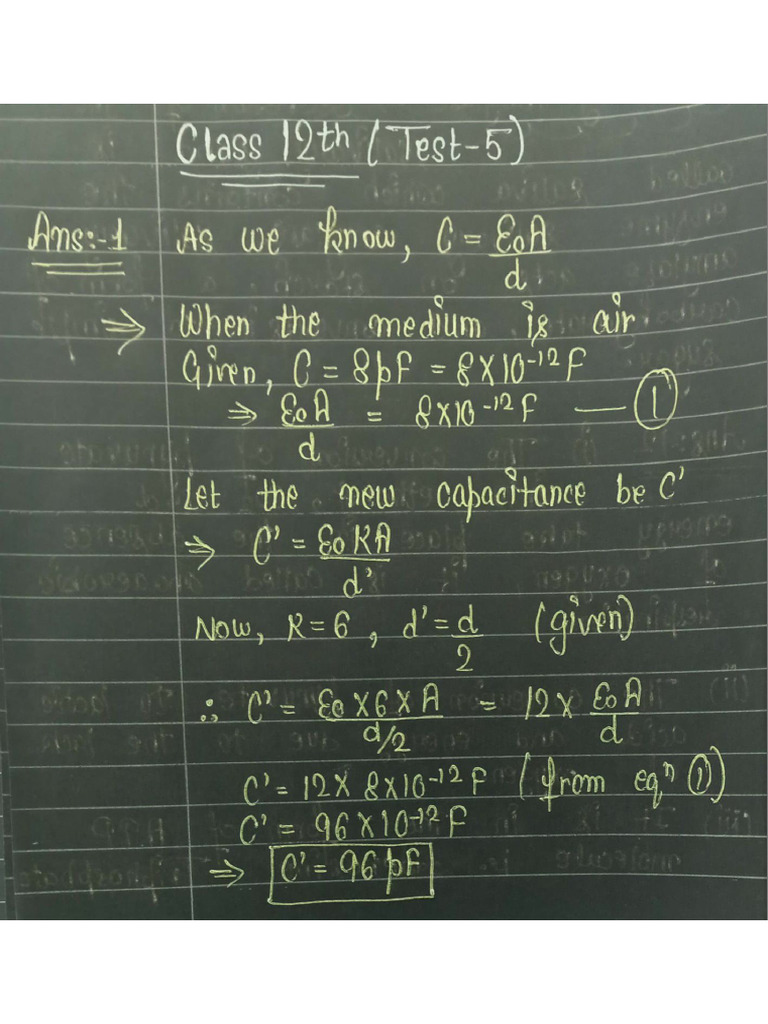 Class 12th (Test-5)
Ans:-1 As we know, C = ε₀A/d
⇒ When the medium is air
Given, C = 8pF = 8×10⁻¹²F
⇒ ε₀A/d = 8×10⁻¹²F — ①
Let the new capacitance be C'
⇒ C' = ε₀KA/d'
Now, K=6, d'=d/2 (given)
∴ C' = ε₀×6×A/d/2 = 12× ε₀A/d
C' = 12× 8×10⁻¹²F (from eqⁿ ①)
C' = 96×10⁻¹²F
⇒ C' = 96 pF